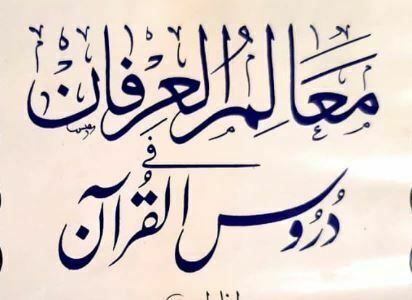 مَعَالِمُ الْعِرفَان
فی
دُرُوس القُرآن